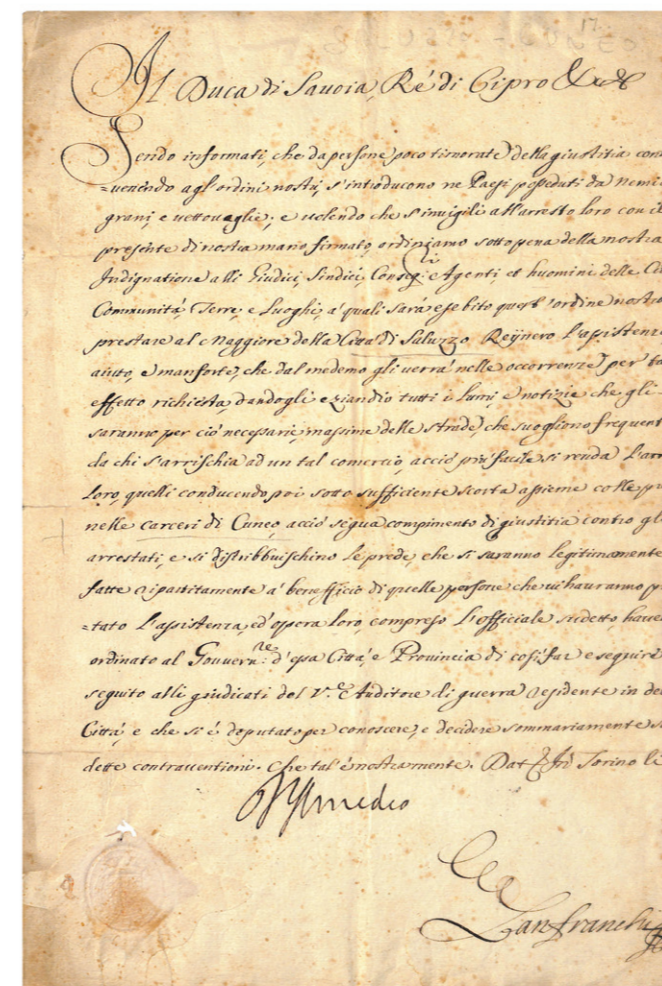 Il Duca di Savoia, Ré di Cipro &c &c
Sendo informati, che da persone poco timorate della giustitia con
=uenendo agl'ordini nostri, s'introducono ne Paesi posseduti da Nemi
grani, e uettouaglie; e uolendo che s'inuigili all'arresto loro con il
presente di nostra mano firmato, ordiniamo sotto pena della nostra
Indignatione alli Giudici, Sindici, Conseg.ri e Agenti, et huomini delle C
Communitá, Terre, e Luoghi, a' quali sará esebito quest'ordine nostro
prestare al Maggiore della Cittá di Saluzzo Reynero l'assistenza
aiuto, e manforte, che dal medemo gli uerrá nelle occorrenze per ta
effetto richiesta, dandogli eziandio tutti i lumi, e notizie che gli
saranno per ció necessarie, massime delle strade, che suogliono frequent
da chi s'arrischia ad un tal comercio, acció piú facile si renda l'arr
loro, quelli conducendo poi sotto sufficiente scorta assieme colle pr
nelle carceri di Cuneo, acció segua compimento di giustitia contro gl
arrestati, e si distribbuischino le prede, che si saranno legitimamente
fatte ripartitamente a' benefficio di quelle persone che ui hauranno p
=tato l'assistenza, ed'opera loro, compreso l'officiale sudetto, haue
ordinato al Gouvern.re d'essa Cittá e Prouincia di cosi far e seguire
seguito alli giudicati del Auditore di guerra residente in de
Cittá, e che si é deputato per conoscere, e decidere sommariamente s
dette contrauentioni. Che tal' é nostra mente. Dat in Torino li
V Amedeo
Lanfranchi